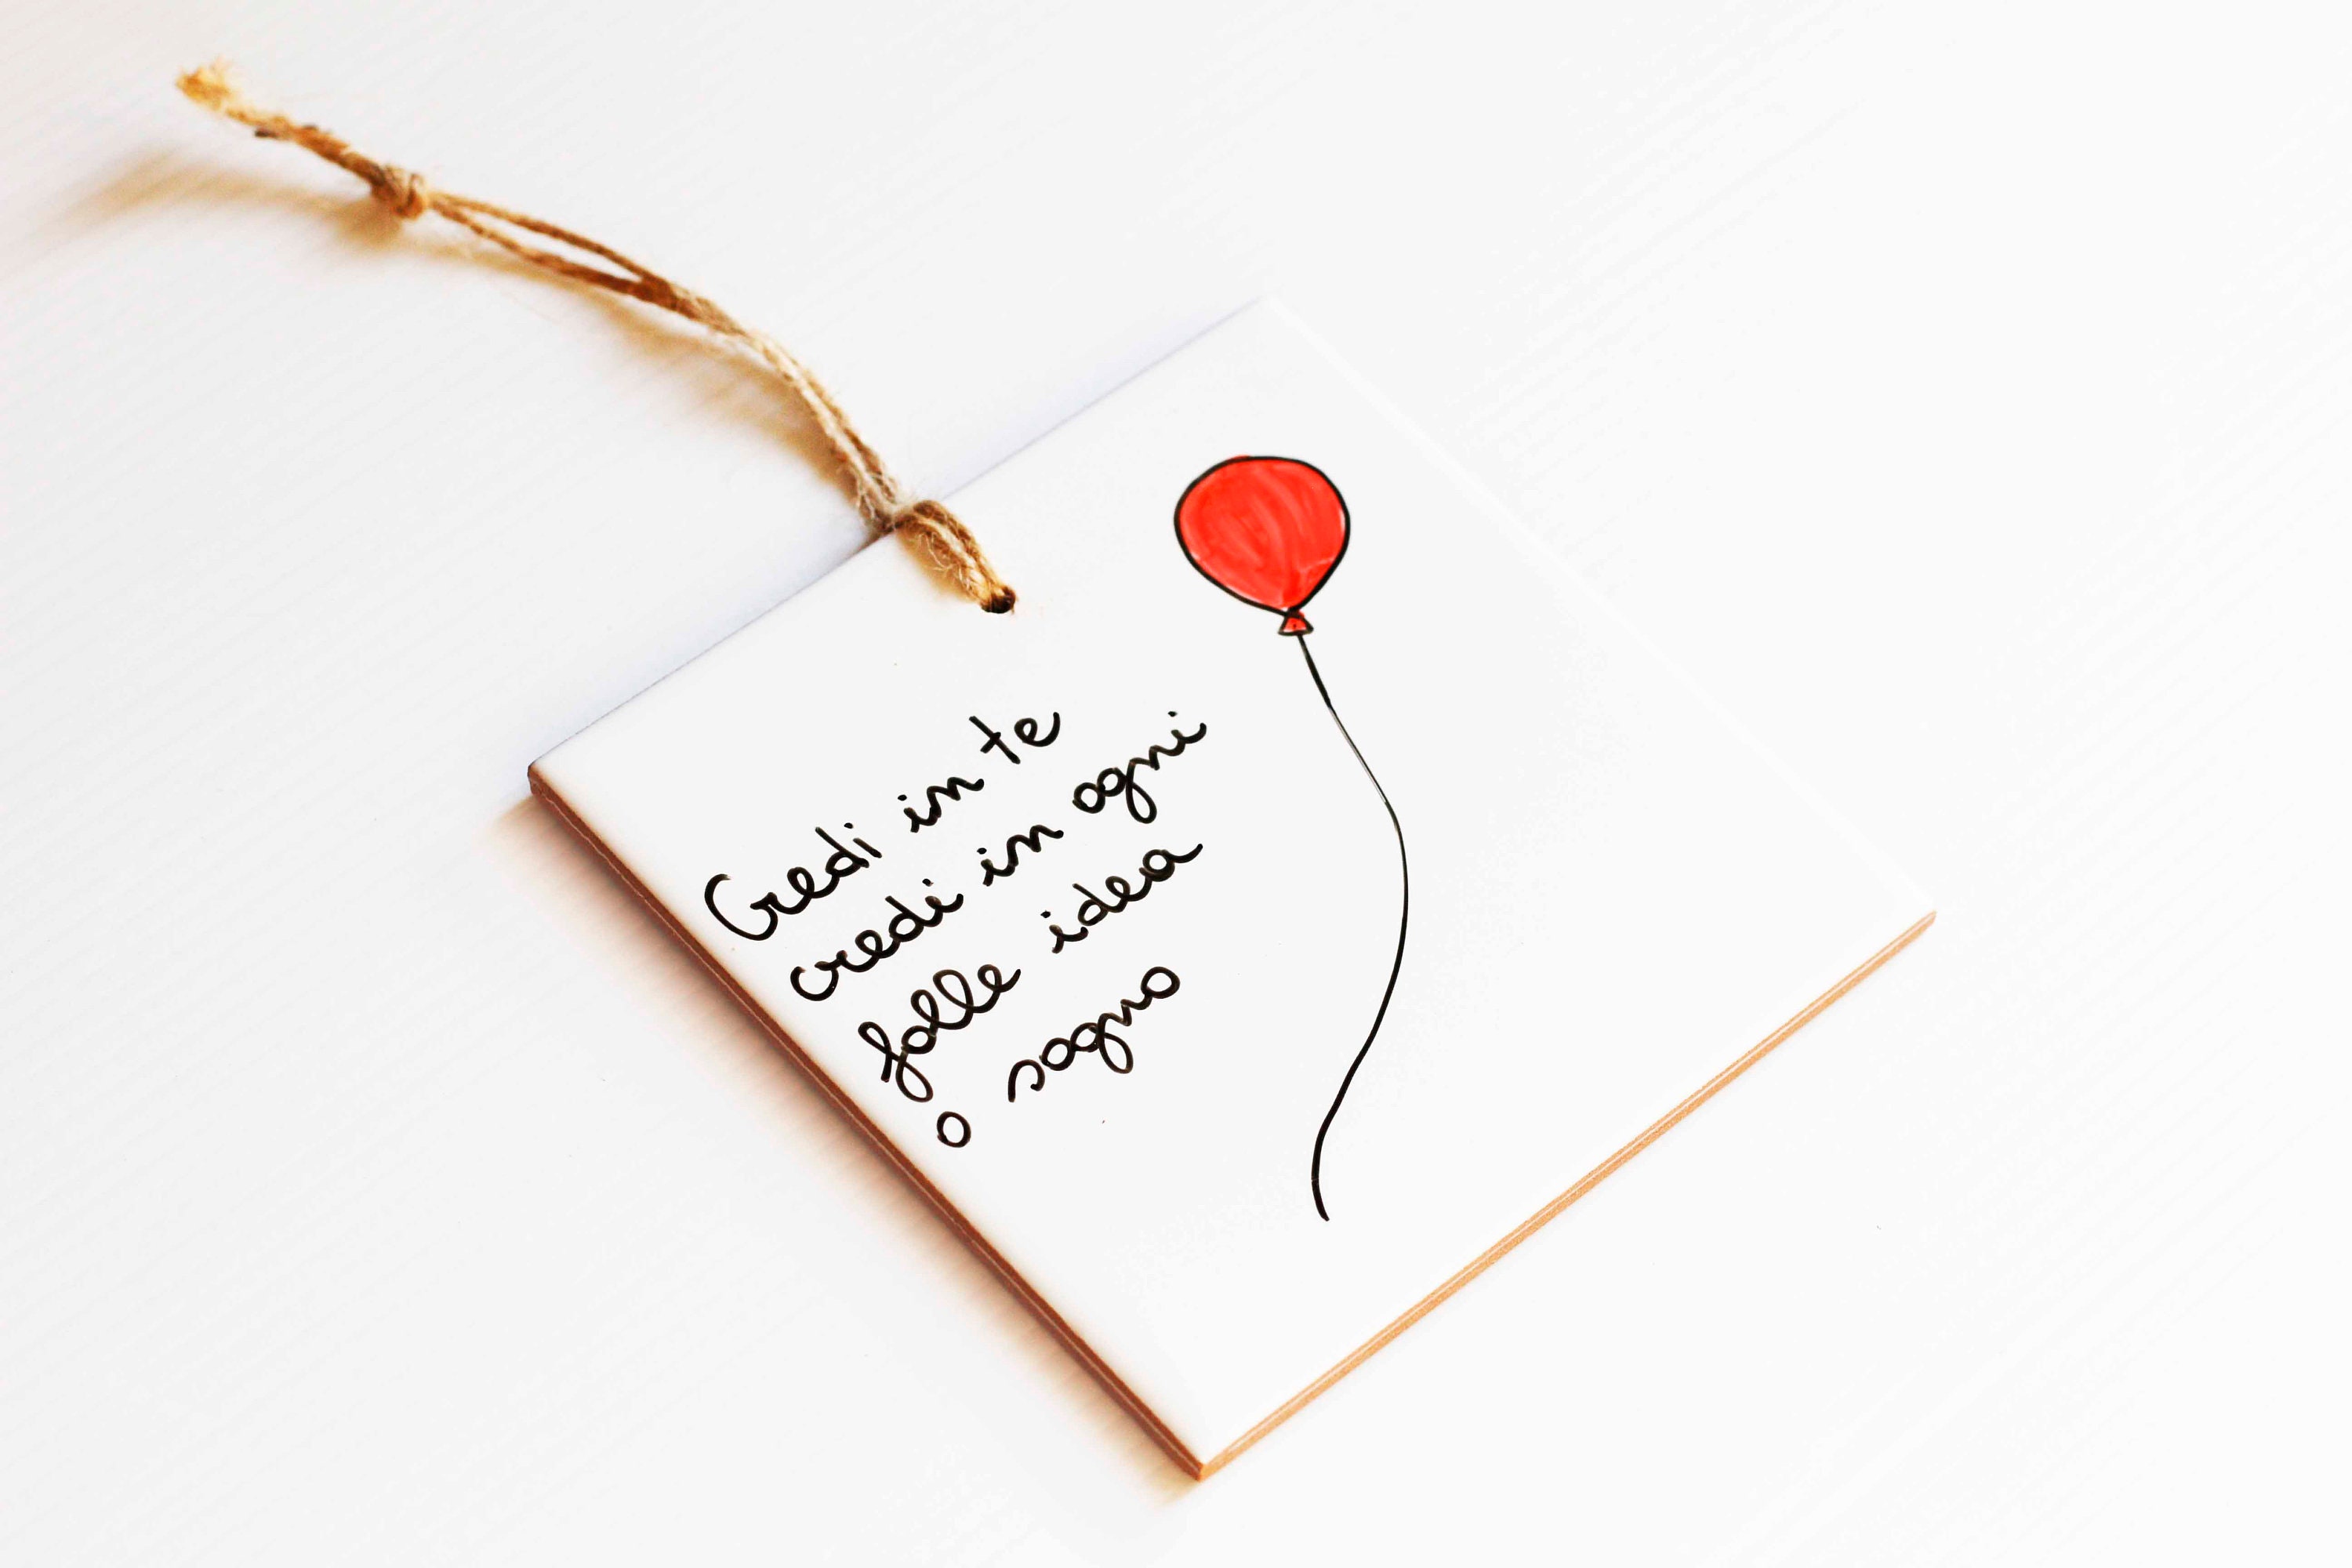 Credi in te
credi in ogni
folle idea
o sogno